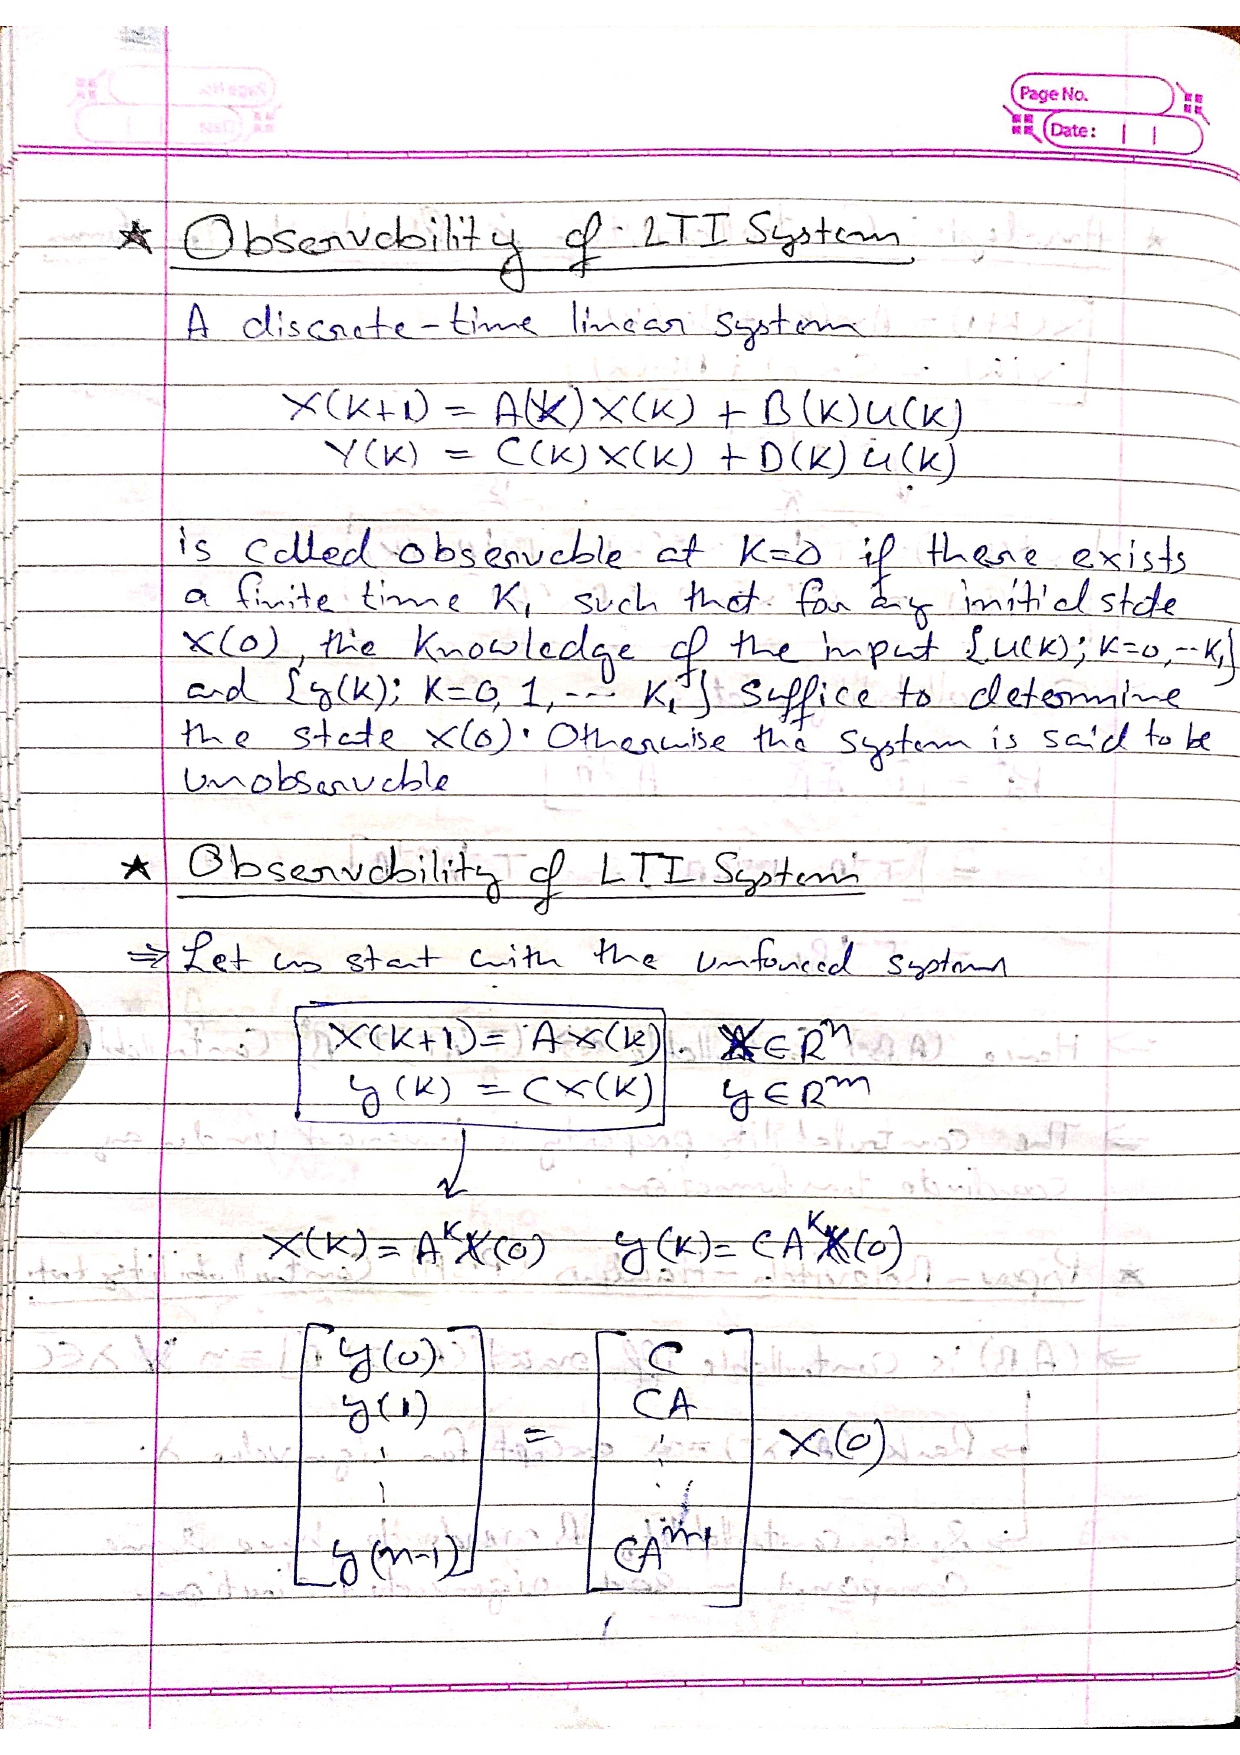 Page No.
Date:
★ Observability of LTI System
A discrete-time linear system
X(K+1) = A(K)X(K) + B(K)U(K)
Y(K) = C(K)X(K) + D(K)U(K)
is called observable at K=0 if there exists
a finite time K₁ such that for any initial state
X(0), the knowledge of the input {U(K); K=0,--K₁}
and {y(K); K=0,1,--- K₁} suffice to determine
the state X(0). Otherwise the system is said to be
unobservable
★ Observability of LTI System
⇒ Let us start with the unforced system
X(K+1) = AX(K) X∈Rⁿ
y(K) = CX(K) y∈Rᵐ
X(K) = AᴷX(0) y(K) = CAᴷX(0)
y(0) C
y(1) CA
= X(0)
y(n-1) CAⁿ⁻¹